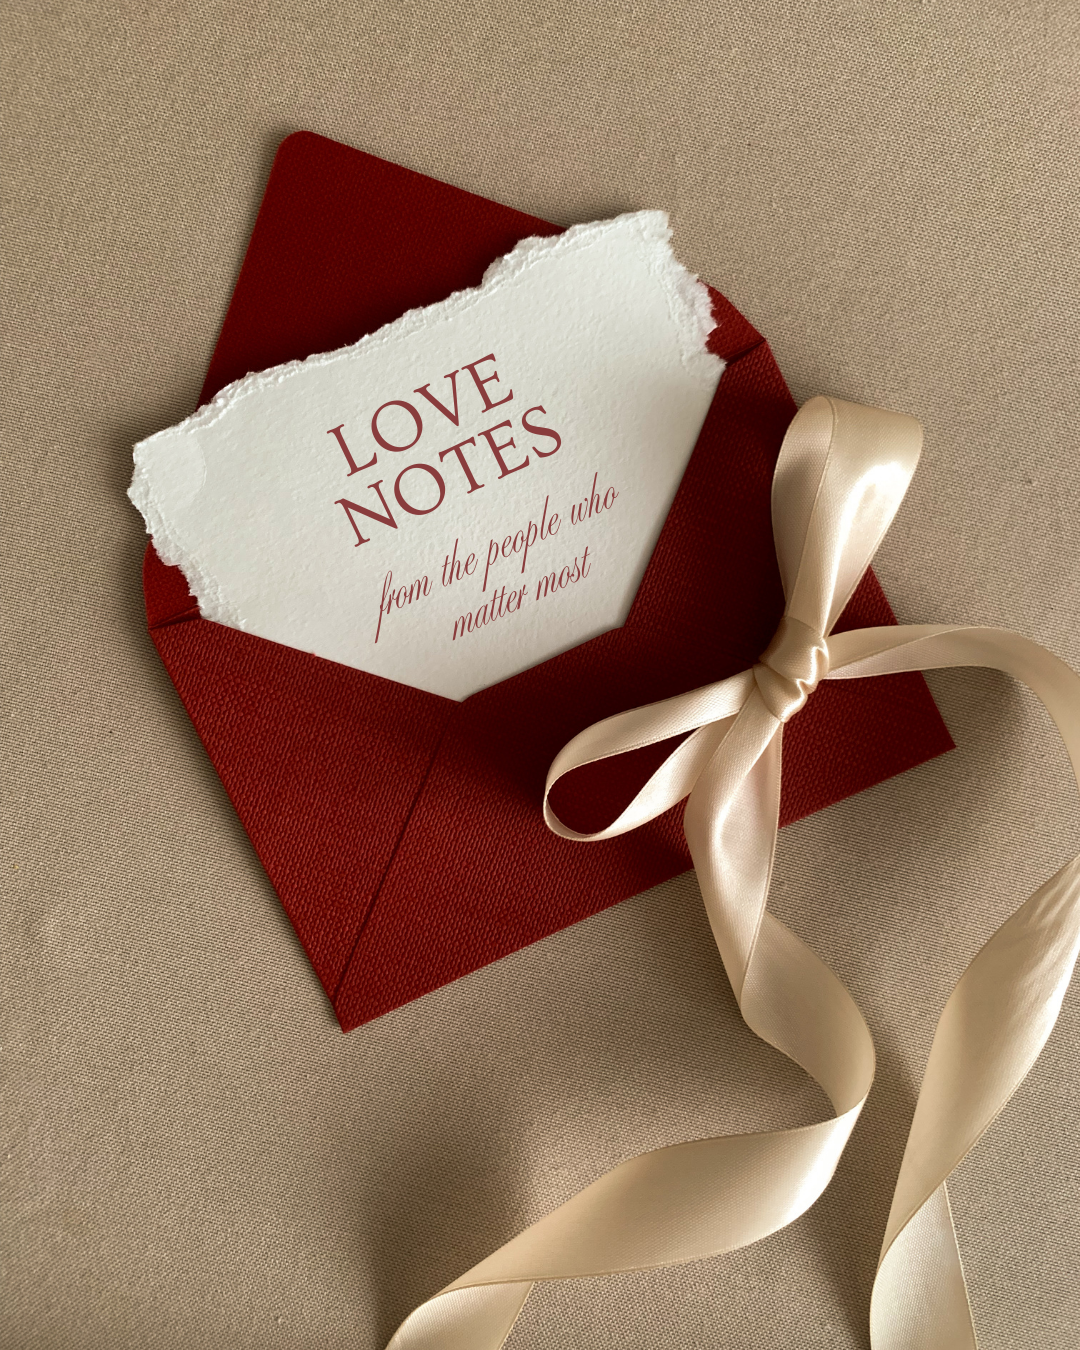 LOVE
NOTES
from the people who
matter most